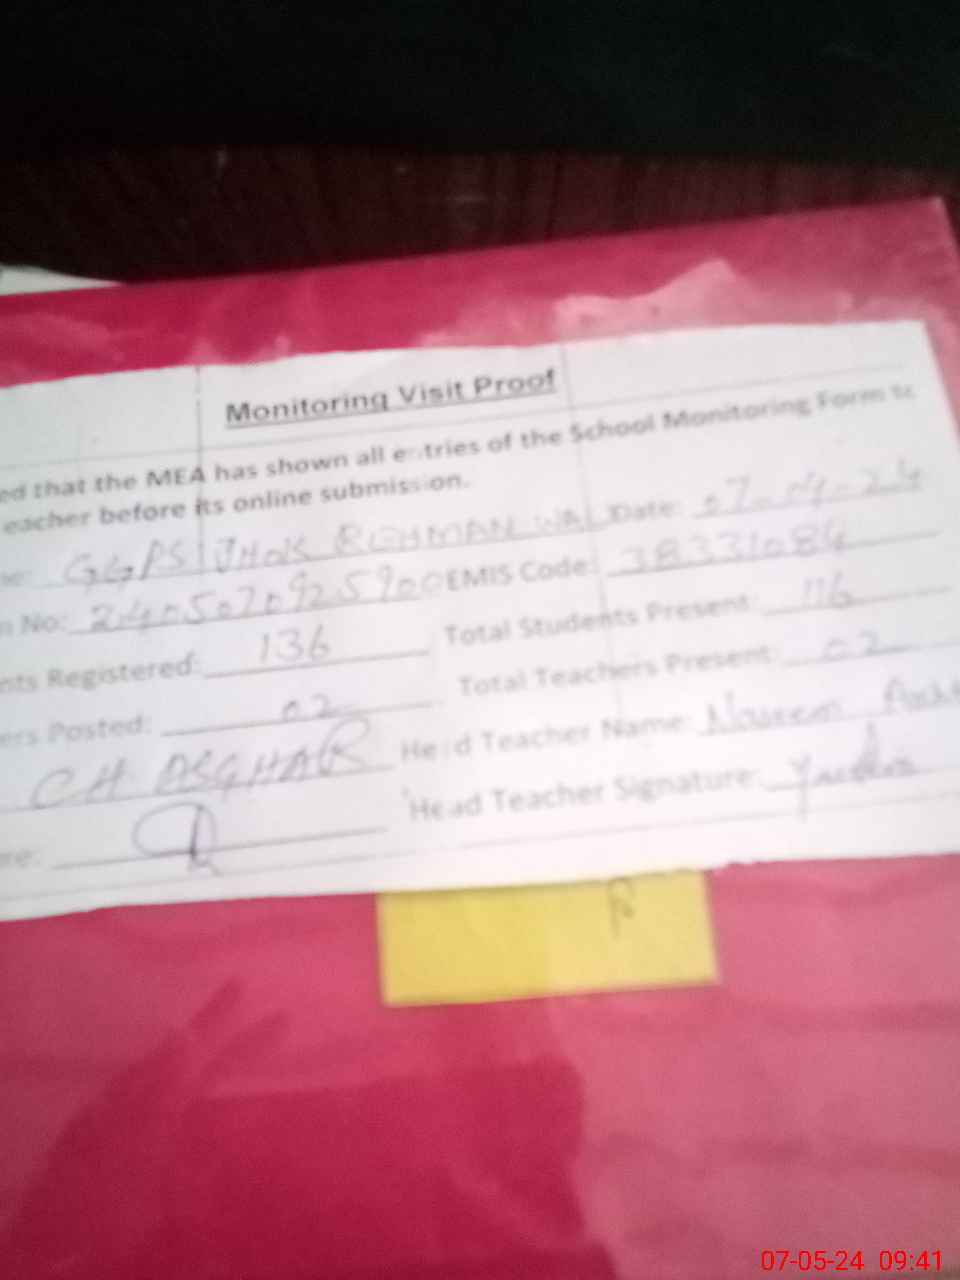 Monitoring Visit Proof
ed that the MEA has shown all entries of the School Monitoring Form to
eacher before its online submission.
GGPS JHOK REHMAN WAL Date: 07-04-24
n No: 2405070925900 EMIS Code: 38331084
nts Registered: 136 Total Students Present: 116
ers Posted: 02 Total Teachers Present: 02
CH ASGHAR Head Teacher Name: Naseem
Head Teacher Signature:
07-05-24 09:41